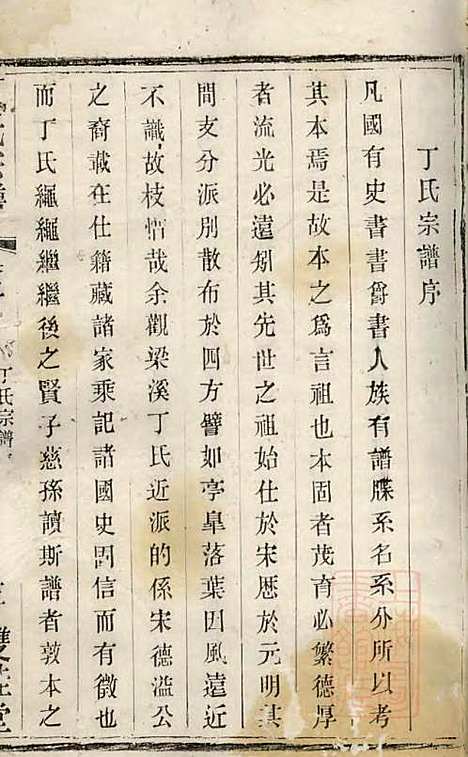 丁氏宗譜序
凡國有史書書爵書人族有譜牒系名系分所以考
其本焉是故本之爲言祖也本固者茂育必繁德厚
者流光必遠矧其先世之祖始仕於宋歷於元明其
間支分派別散布於四方譬如亭皐落葉因風遠近
不識故枝惜哉余觀梁溪丁氏近派的係宋德溢公
之裔載在仕籍藏諸家乘記諸國史固信而有徵也
而丁氏繩繩繼繼後之賢子慈孫讀斯譜者敦本之
丁氏宗譜
雙桂堂